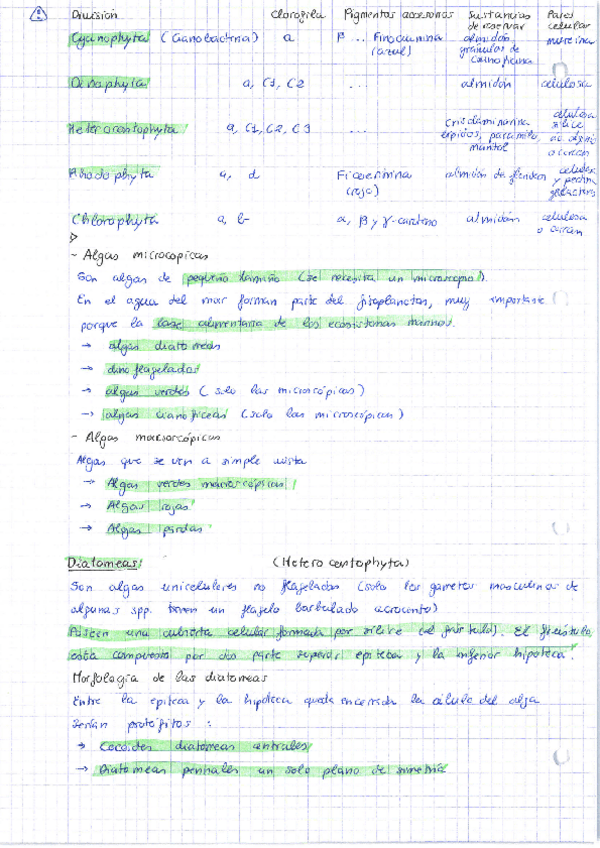 División Clorofila Pigmentos accesorios Sustancias de reserva Pared celular
Cyanophyta (Cianobacteria) a β ... Ficocianina (azul) almidón gránulos de cianoficina mureina
Dinophyta a, C1, C2 ... almidón celulosa
Heterocontophyta a, C1, C2, C3 ... Crisolaminarina lípidos, manitol celulosa sílice
Rhodophyta a, d Ficoeritrina (rojo) almidón de celulosa y pectina
Chlorophyta a, b α, β y γ-caroteno almidón celulosa o
- Algas microcopicas
Son algas de pequeño tamaño (se necesita un microscopio).
En el agua del mar forman parte del fitoplancton, muy importante
porque la base alimentaria de los ecosistemas marinos.
→ algas diatomeas
→ dinoflagelados
→ algas verdes (solo las microscópicas)
→ algas cianofíceas (solo las microscópicas)
- Algas macroscópicas
Algas que se ven a simple vista
→ Algas verdes macroscópicas
→ Algas rojas
→ Algas pardas
Diatomeas: (Heterocontophyta)
Son algas unicelulares no flageladas (solo los gametos masculinos de
algunas spp. tienen un flagelo barbulado acroconto)
Poseen una cubierta celular formada por sílice (el frústulo). El frústulo
esta compuesto por dos parte superior epiteca y la inferior hipoteca.
Morfología de las diatomeas
Entre la epiteca y la hipoteca queda encerrada la célula del alga
Serían protófitos :
→ Cocoides diatomeas centrales
→ Diatomeas pennales un solo plano de simetría